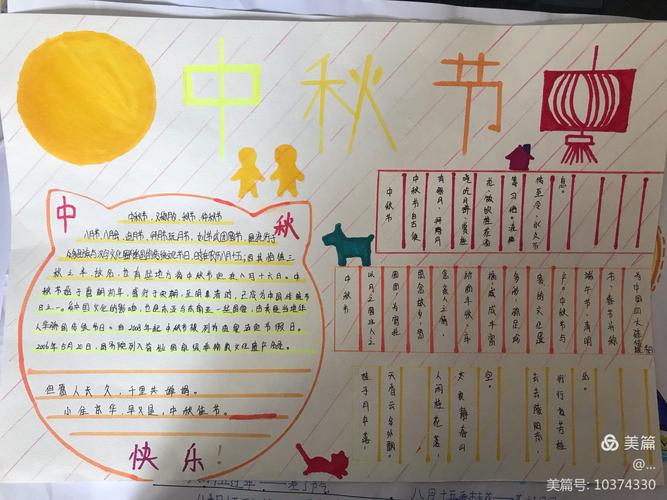 中秋节
中 秋
中秋节，又称月夕、秋节、仲秋节
八月节、八月会、追月节、拜月节、玩月节、女儿节或团圆节，是流行于
全国众多民族与汉字文化圈诸国的传统文化节日，时在农历八月十五；因其恰值三
秋之半，故名，也有些地方将中秋节定在八月十六日。中
秋节始于唐朝初年，盛行于宋朝，至明清时，已成为中国传统节
日之一。受中国文化的影响，也是东亚与东南亚一些国家，尤其是当地华
人华侨的传统节日。自2008年起中秋节被列为国家法定节假日。
2006年5月20日，国务院列入首批国家级非物质文化遗产名录。
但愿人长久，千里共婵娟。
小住京华，早又是，中秋佳节。
快乐！
中秋节
中秋节自古便
有祭月、拜月
吃月饼、赏桂
花、饮桂花酒
等习俗，流传
至今，经久不
息。
中秋节
以月之圆兆人之
团圆，为寄托
思念故乡，思
念亲人之情，
祈盼丰收、幸
福，成为丰富
多彩、弥足珍
贵的文化遗
产。中秋节与
端午节、清明
节、春节并称
为中国四大传统
桂子月中落，
天香云外飘。
人闲桂花落，
夜静春山
空。
丛。
美篇
@...
美篇号: 10374330